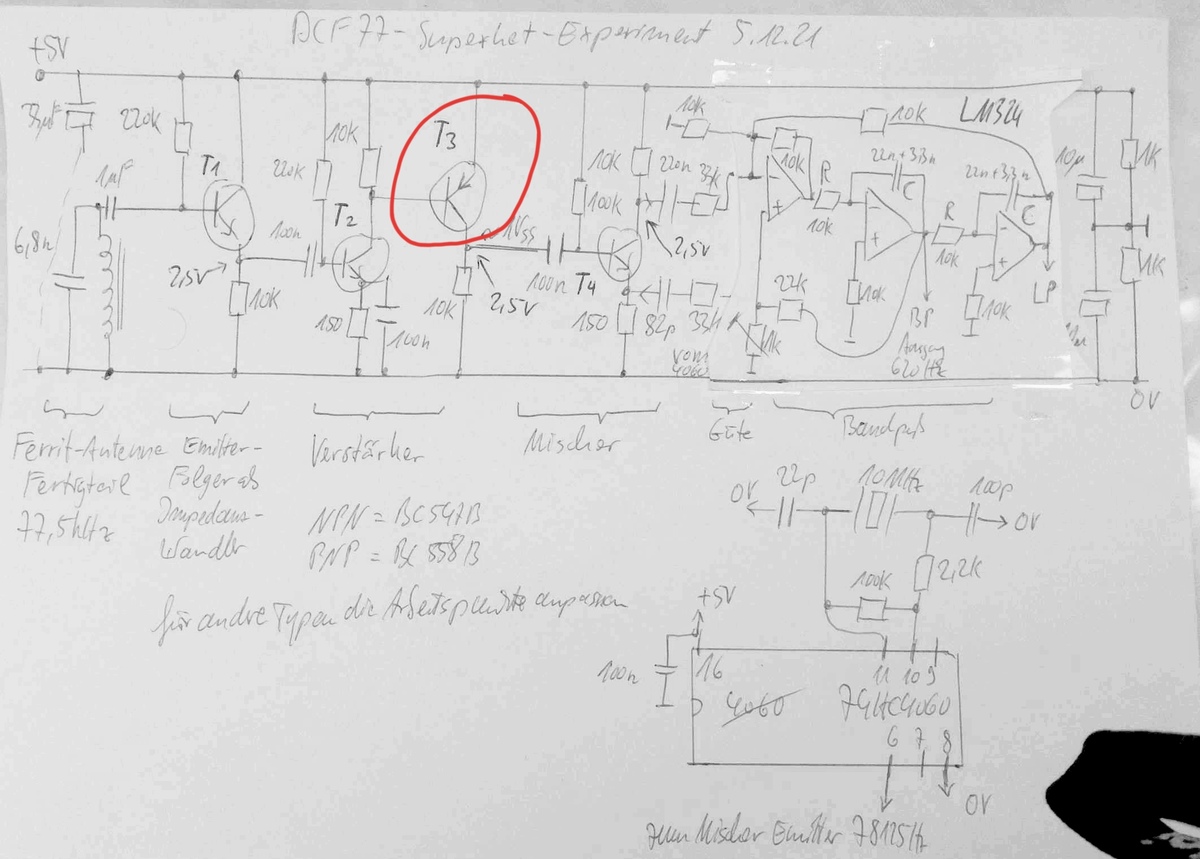 DCF77-Superhet-Experiment 5.12.21
+5V
33µF
220k
1µF
T1
6,8n
2,5V
10k
100n
220k
10k
T2
150
100n
T3
1Vss
10k
2,5V
100n
T4
10k
100k
220n
33k
2,5V
150
82p
33k
vom
4060
10k
10k
10k
LM324
R
10k
22n+3,3n
C
22k
1k
10k
BP
Ausgang
620Hz
R
10k
22n+3,3n
C
10k
LP
10µ
1k
1k
0V
Ferrit-Antenne
Fertigteil
77,5kHz
Emitter-
Folger als
Impedanz-
Wandler
Verstärker
Mischer
Güte
Bandpaß
NPN = BC547B
PNP = BC558B
für andre Typen die Arbeitspunkte anpassen
0V
22p
10MHz
100p
0V
100k
2,2k
+5V
100n
16
11
10
9
4060
74HC4060
6
7
8
0V
zum Mischer Emitter 78125Hz